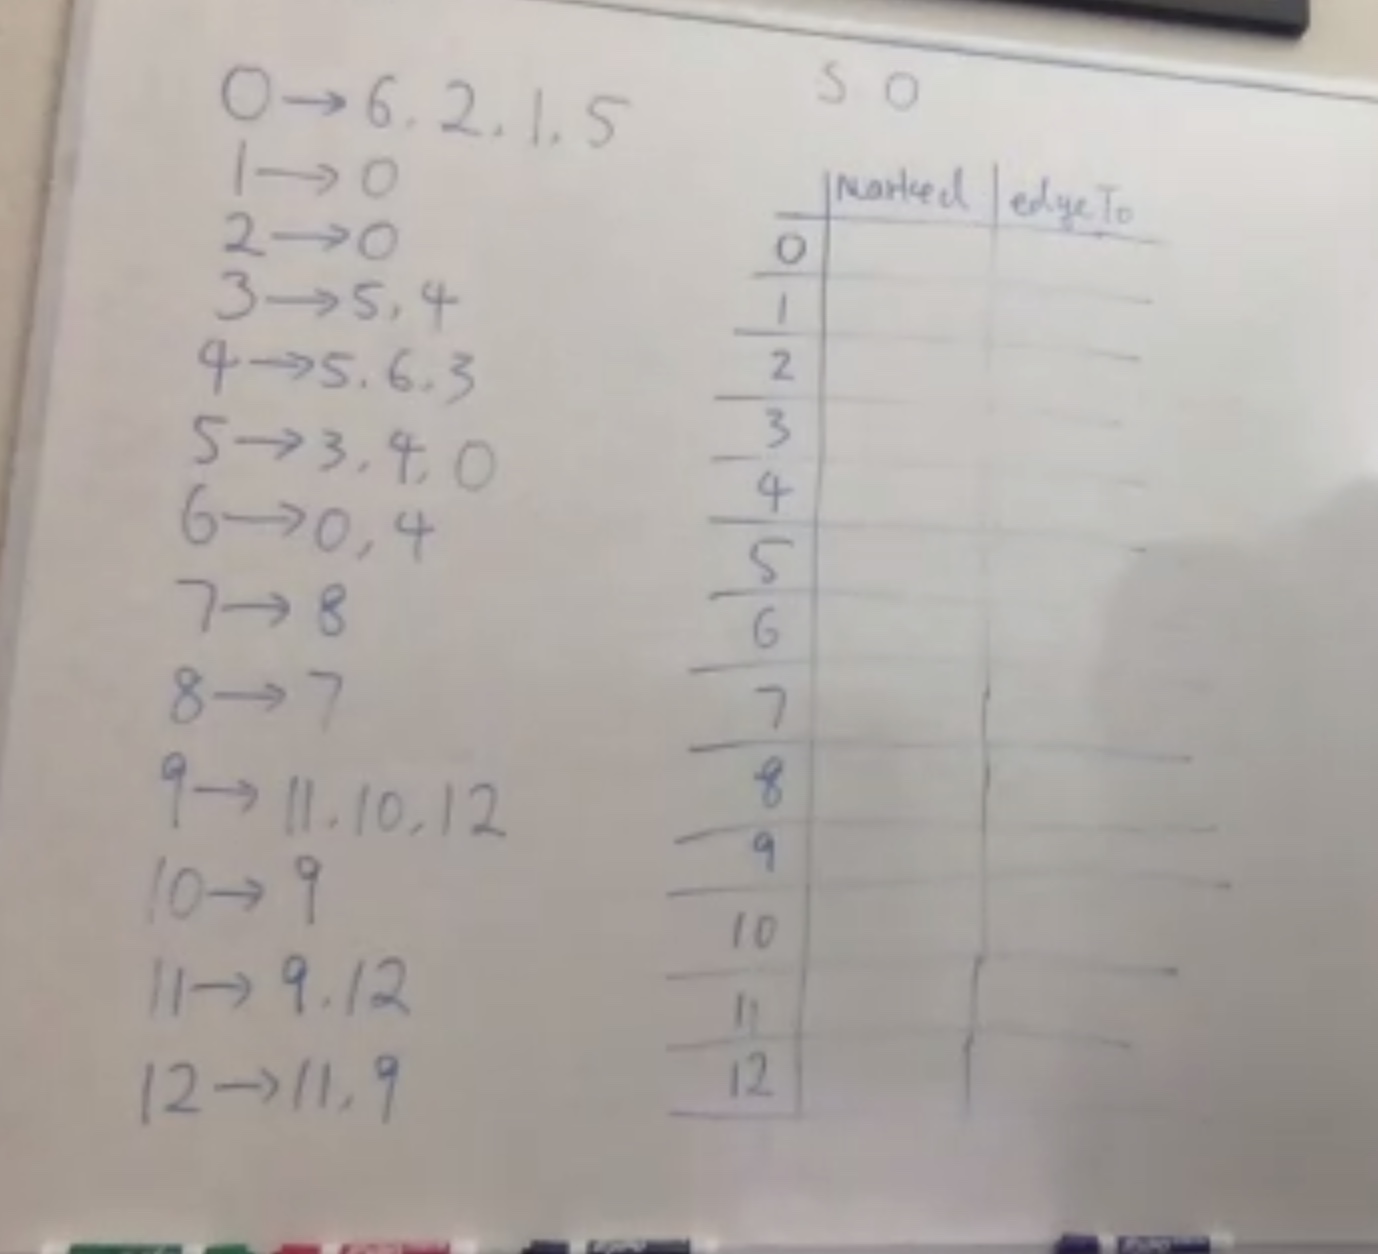 0→6.2.1.5
1→0
2→0
3→5,4
4→5.6.3
5→3.4.0
6→0,4
7→8
8→7
9→11.10.12
10→9
11→9.12
12→11.9
S 0
marked edgeTo
0
1
2
3
4
5
6
7
8
9
10
11
12